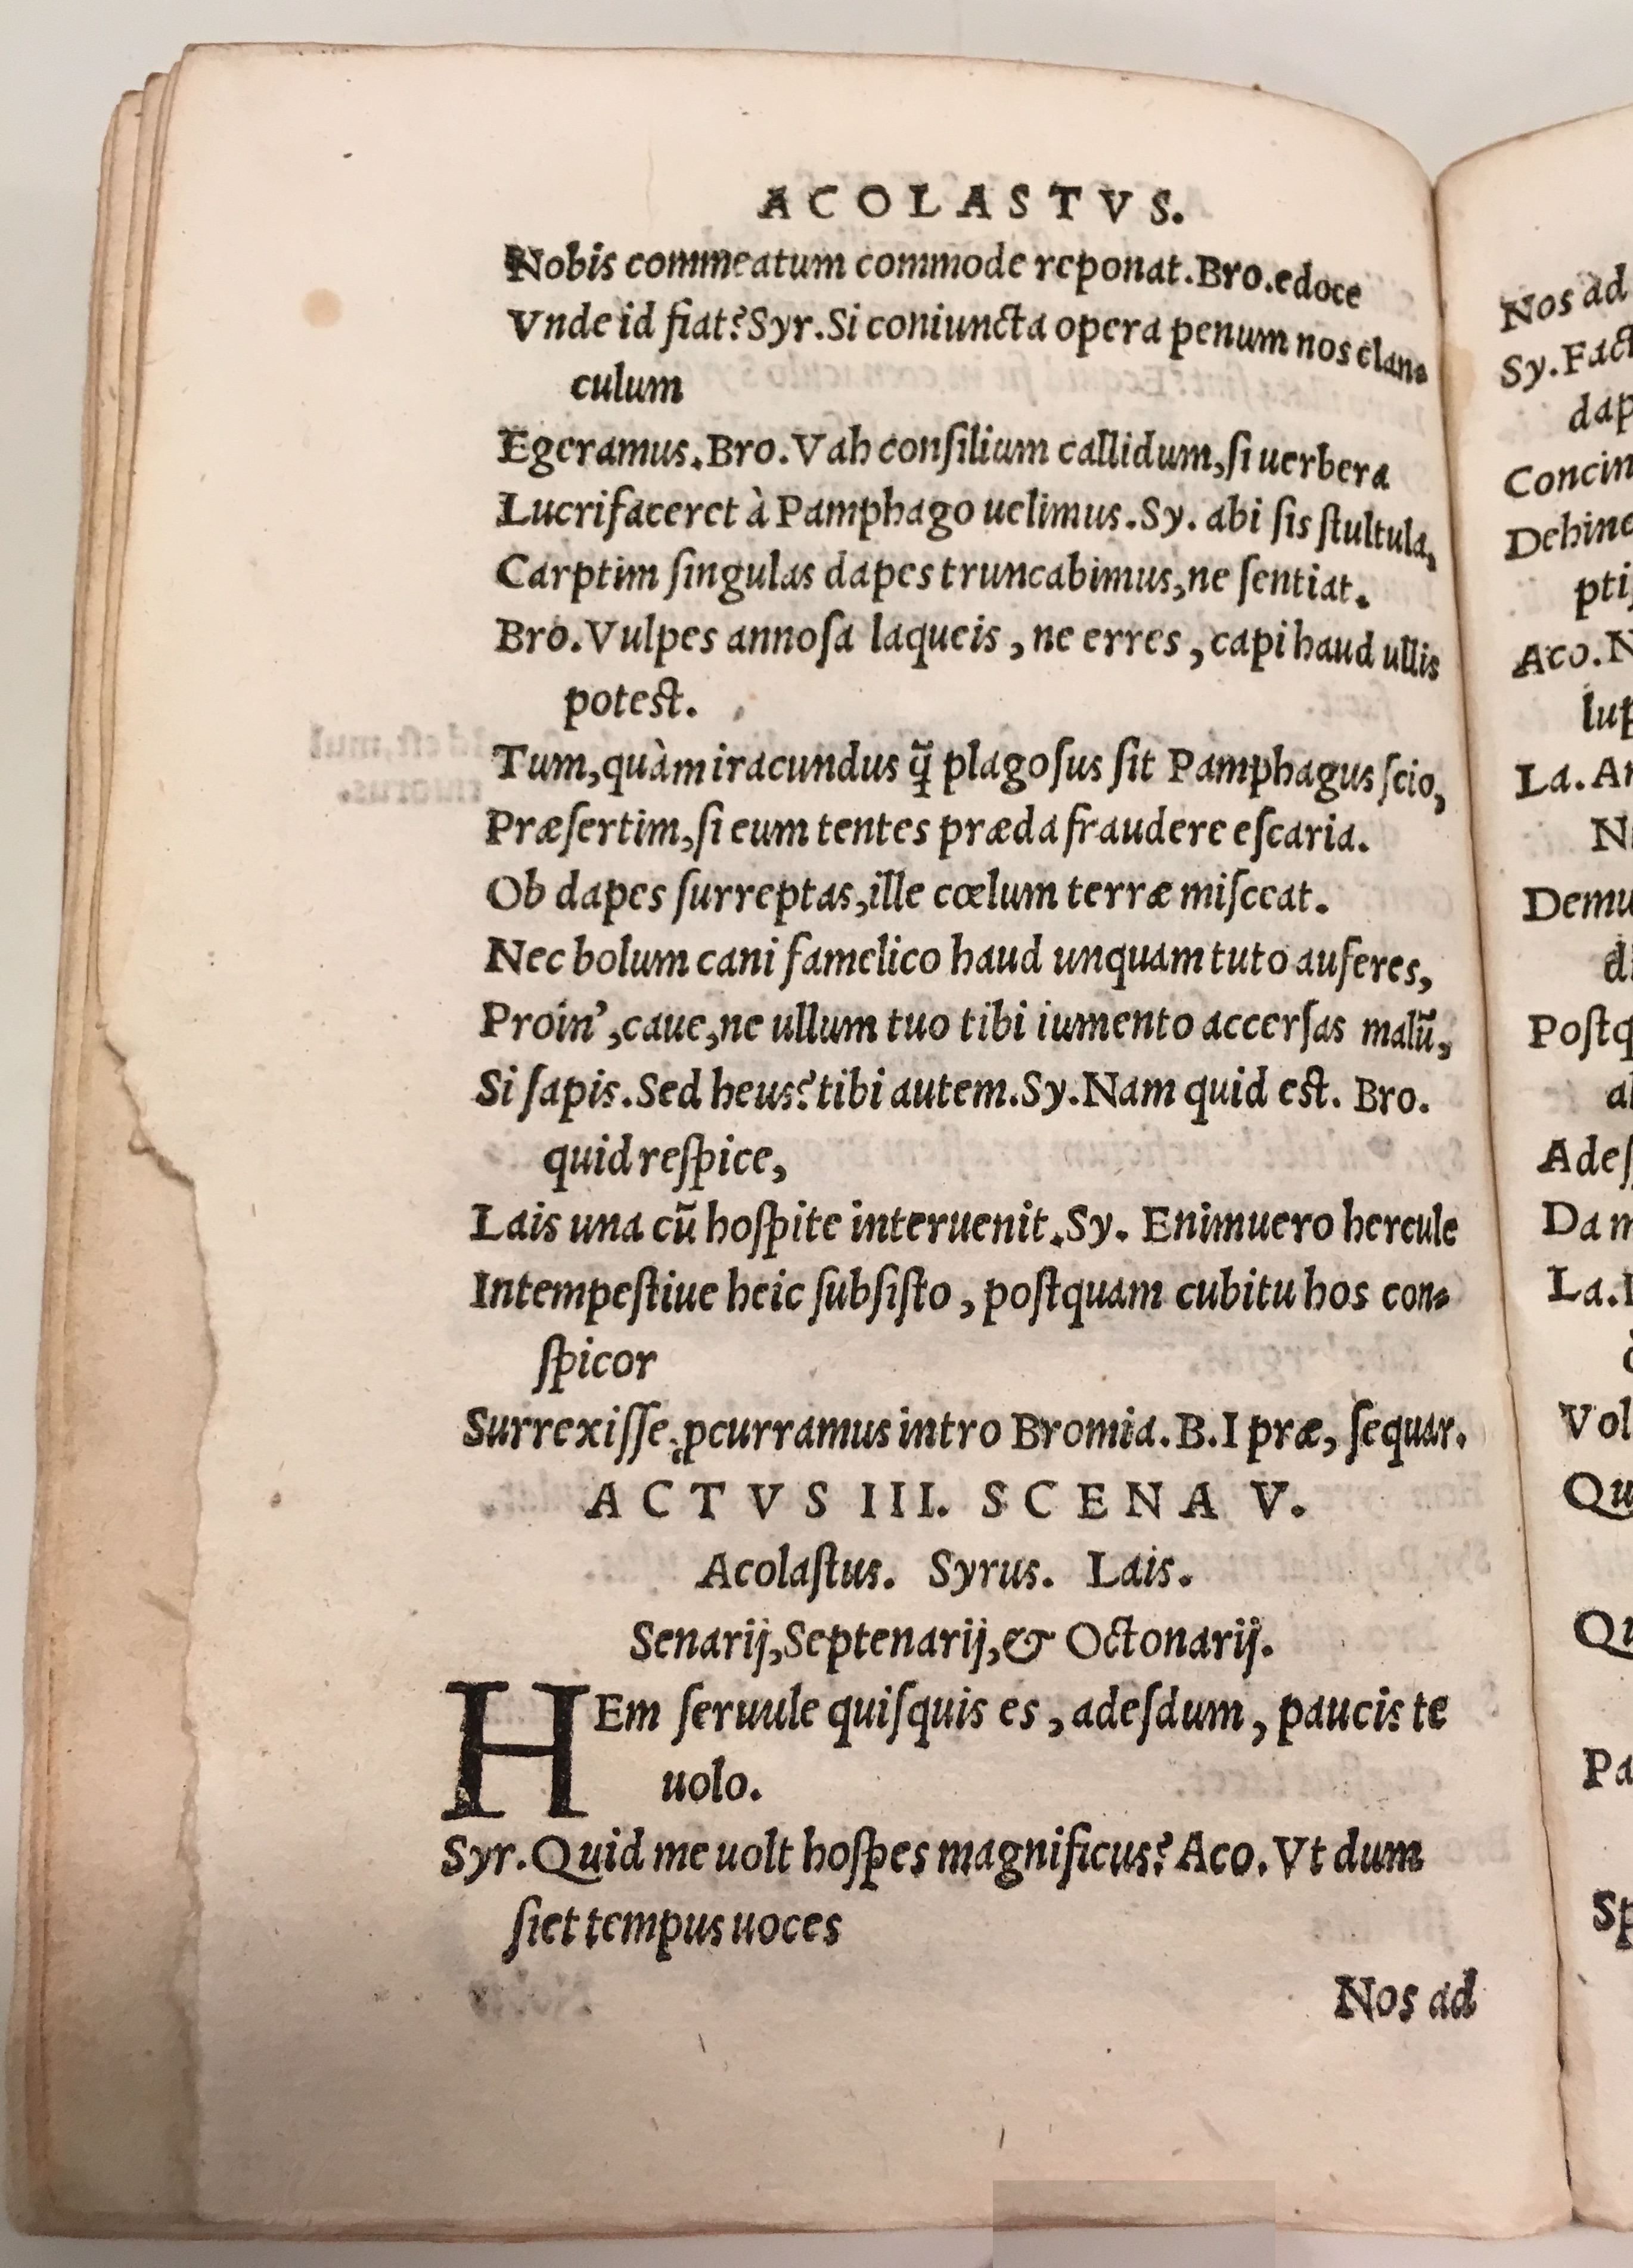 ACOLASTVS.
Nobis commeatum commode reponat. Bro. edoce
Vnde id fiat? Syr. Si coniuncta opera penum nos clan-
culum
Egeramus. Bro. Vah consilium callidum, si uerbera
Lucrifaceret à Pamphago uelimus. Sy. abi sis stultula,
Carptim singulas dapes truncabimus, ne sentiat.
Bro. Vulpes annosa laqueis, ne erres, capi haud ullis
potest.
Tum, quàm iracundus q̃ plagosus sit Pamphagus scio,
Præsertim, si eum tentes præda fraudere escaria.
Ob dapes surreptas, ille cœlum terræ misceat.
Nec bolum cani famelico haud unquam tuto auferes,
Proin', caue, ne ullum tuo tibi iumento accersas malũ,
Si sapis. Sed heus? tibi autem. Sy. Nam quid est. Bro.
quid respice,
Lais una cũ hospite interuenit. Sy. Enimuero hercule
Intempestiue heic subsisto, postquam cubitu hos con-
spicor
Surrexisse, ꝓcurramus intro Bromia. B. I præ, sequar.
ACTVS III. SCENA V.
Acolastus. Syrus. Lais.
Senarij, Septenarij, & Octonarij.
HEm seruule quisquis es, adesdum, paucis te
uolo.
Syr. Quid me uolt hospes magnificus? Aco. Vt dum
siet tempus uoces
Nos ad
Nos ad
Sy. Fact
dap
Concin
Dehinc
pti
Aco. N
lup
La. An
Ni
Demu
di
Postq
al
Ades
Da m
La. I
Vol
Qu
Qu
Pa
Sp